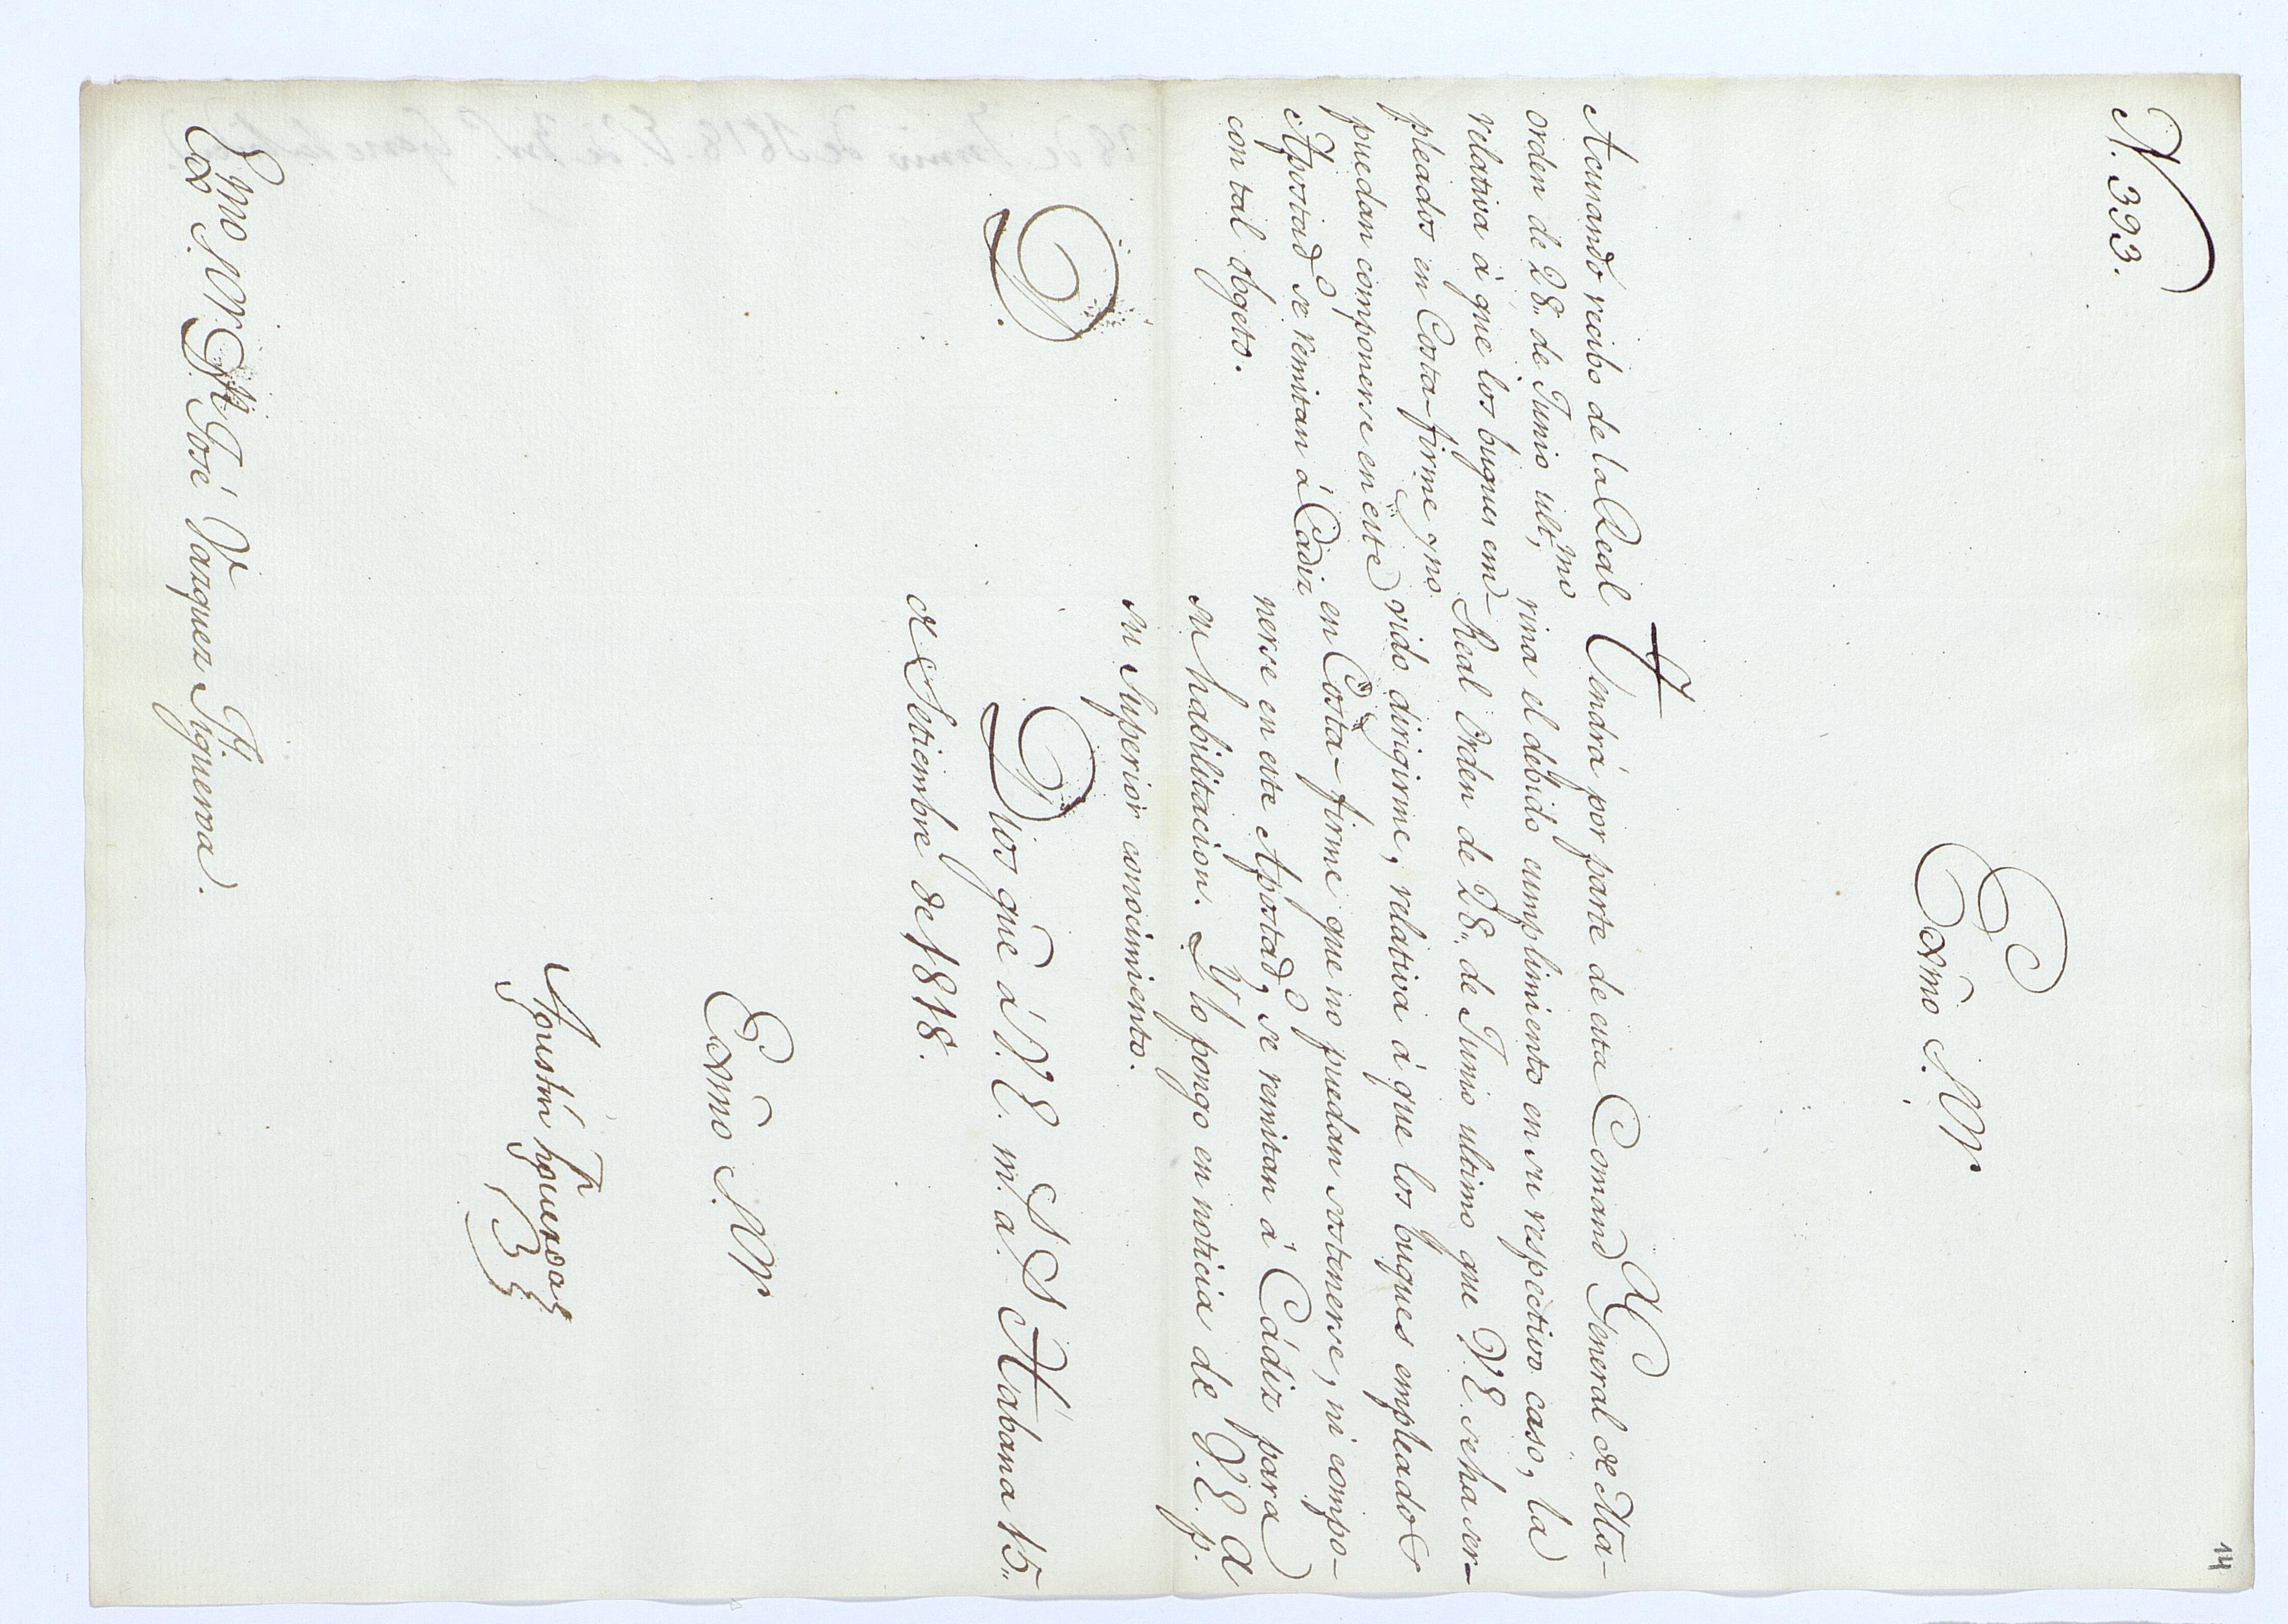 14
N. 393.
Exmo Sor
Acusando recibo de la Real
orden de 28,, de Junio ultmo
relativa á que los buques em-
pleados en Costa-firme q no
puedan componerse en este
Apostado se remitan á Cadiz
con tal objeto.
Tendrá por parte de esta Comandª General de Ma-
rina el debido cumplimiento en su respectivo caso, la
Real Orden de 28,, de Junio ultimo que V.E. se ha ser-
vido dirigirme, relativa á que los buques empleados
en Costa-firme que no puedan sostenerse, ni compo-
nerse en este Apostado, se remitan á Cádiz para
su habilitacion. Y lo pongo en noticia de V.E. á
su Superior conocimiento.
D.
Dios gue á V.E. m. a. Habana 15,,
de Setiembre de 1818.
Exmo Sor
Agustin Figueroa
Exmo Sor Dn José Vazquez Figueroa.